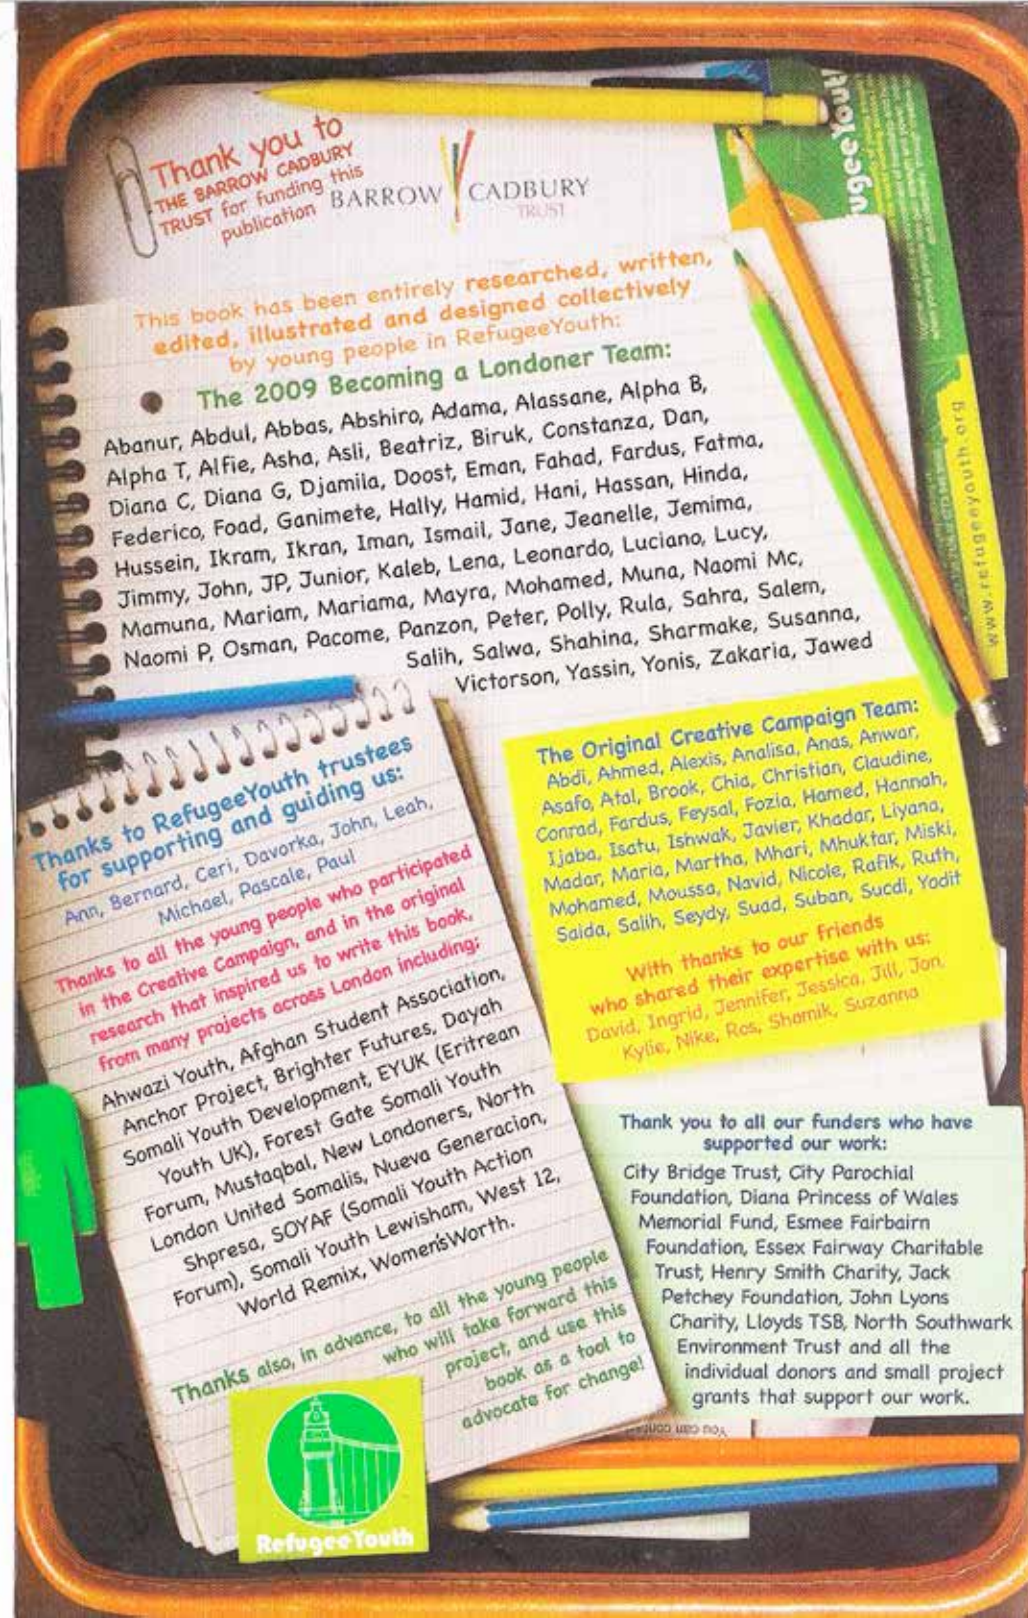 Thank you to
THE BARROW CADBURY
TRUST for funding this
publication
BARROW CADBURY
TRUST
This book has been entirely researched, written,
edited, illustrated and designed collectively
by young people in RefugeeYouth:
The 2009 Becoming a Londoner Team:
Abanur, Abdul, Abbas, Abshiro, Adama, Alassane, Alpha B,
Alpha T, Alfie, Asha, Asli, Beatriz, Biruk, Constanza, Dan,
Diana C, Diana G, Djamila, Doost, Eman, Fahad, Fardus, Fatma,
Federico, Foad, Ganimete, Hally, Hamid, Hani, Hassan, Hinda,
Hussein, Ikram, Ikran, Iman, Ismail, Jane, Jeanelle, Jemima,
Jimmy, John, JP, Junior, Kaleb, Lena, Leonardo, Luciano, Lucy,
Mamuna, Mariam, Mariama, Mayra, Mohamed, Muna, Naomi Mc,
Naomi P, Osman, Pacome, Panzon, Peter, Polly, Rula, Sahra, Salem,
Salih, Salwa, Shahina, Sharmake, Susanna,
Victorson, Yassin, Yonis, Zakaria, Jawed
www.refugeeyouth.org
Thanks to RefugeeYouth trustees
for supporting and guiding us:
Ann, Bernard, Ceri, Davorka, John, Leah,
Michael, Pascale, Paul
Thanks to all the young people who participated
in the Creative Campaign, and in the original
research that inspired us to write this book,
from many projects across London including:
Ahwazi Youth, Afghan Student Association,
Anchor Project, Brighter Futures, Dayah
Somali Youth Development, EYUK (Eritrean
Youth UK), Forest Gate Somali Youth
Forum, Mustaqbal, New Londoners, North
London United Somalis, Nueva Generacion,
Shpresa, SOYAF (Somali Youth Action
Forum), Somali Youth Lewisham, West 12,
World Remix, Women'sWorth.
Thanks also, in advance, to all the young people
who will take forward this
project, and use this
book as a tool to
advocate for change!
RefugeeYouth
The Original Creative Campaign Team:
Abdi, Ahmed, Alexis, Analisa, Anas, Anwar,
Asafo, Atal, Brook, Chia, Christian, Claudine,
Conrad, Fardus, Feysal, Fozia, Hamed, Hannah,
Ijaba, Isatu, Ishwak, Javier, Khadar, Liyana,
Madar, Maria, Martha, Mhari, Mhuktar, Miski,
Mohamed, Moussa, Navid, Nicole, Rafik, Ruth,
Saida, Salih, Seydy, Suad, Suban, Sucdi, Yodit
With thanks to our friends
who shared their expertise with us:
David, Ingrid, Jennifer, Jessica, Jill, Jon,
Kylie, Nike, Ros, Shamik, Suzanna
Thank you to all our funders who have
supported our work:
City Bridge Trust, City Parochial
Foundation, Diana Princess of Wales
Memorial Fund, Esmee Fairbairn
Foundation, Essex Fairway Charitable
Trust, Henry Smith Charity, Jack
Petchey Foundation, John Lyons
Charity, Lloyds TSB, North Southwark
Environment Trust and all the
individual donors and small project
grants that support our work.
You can